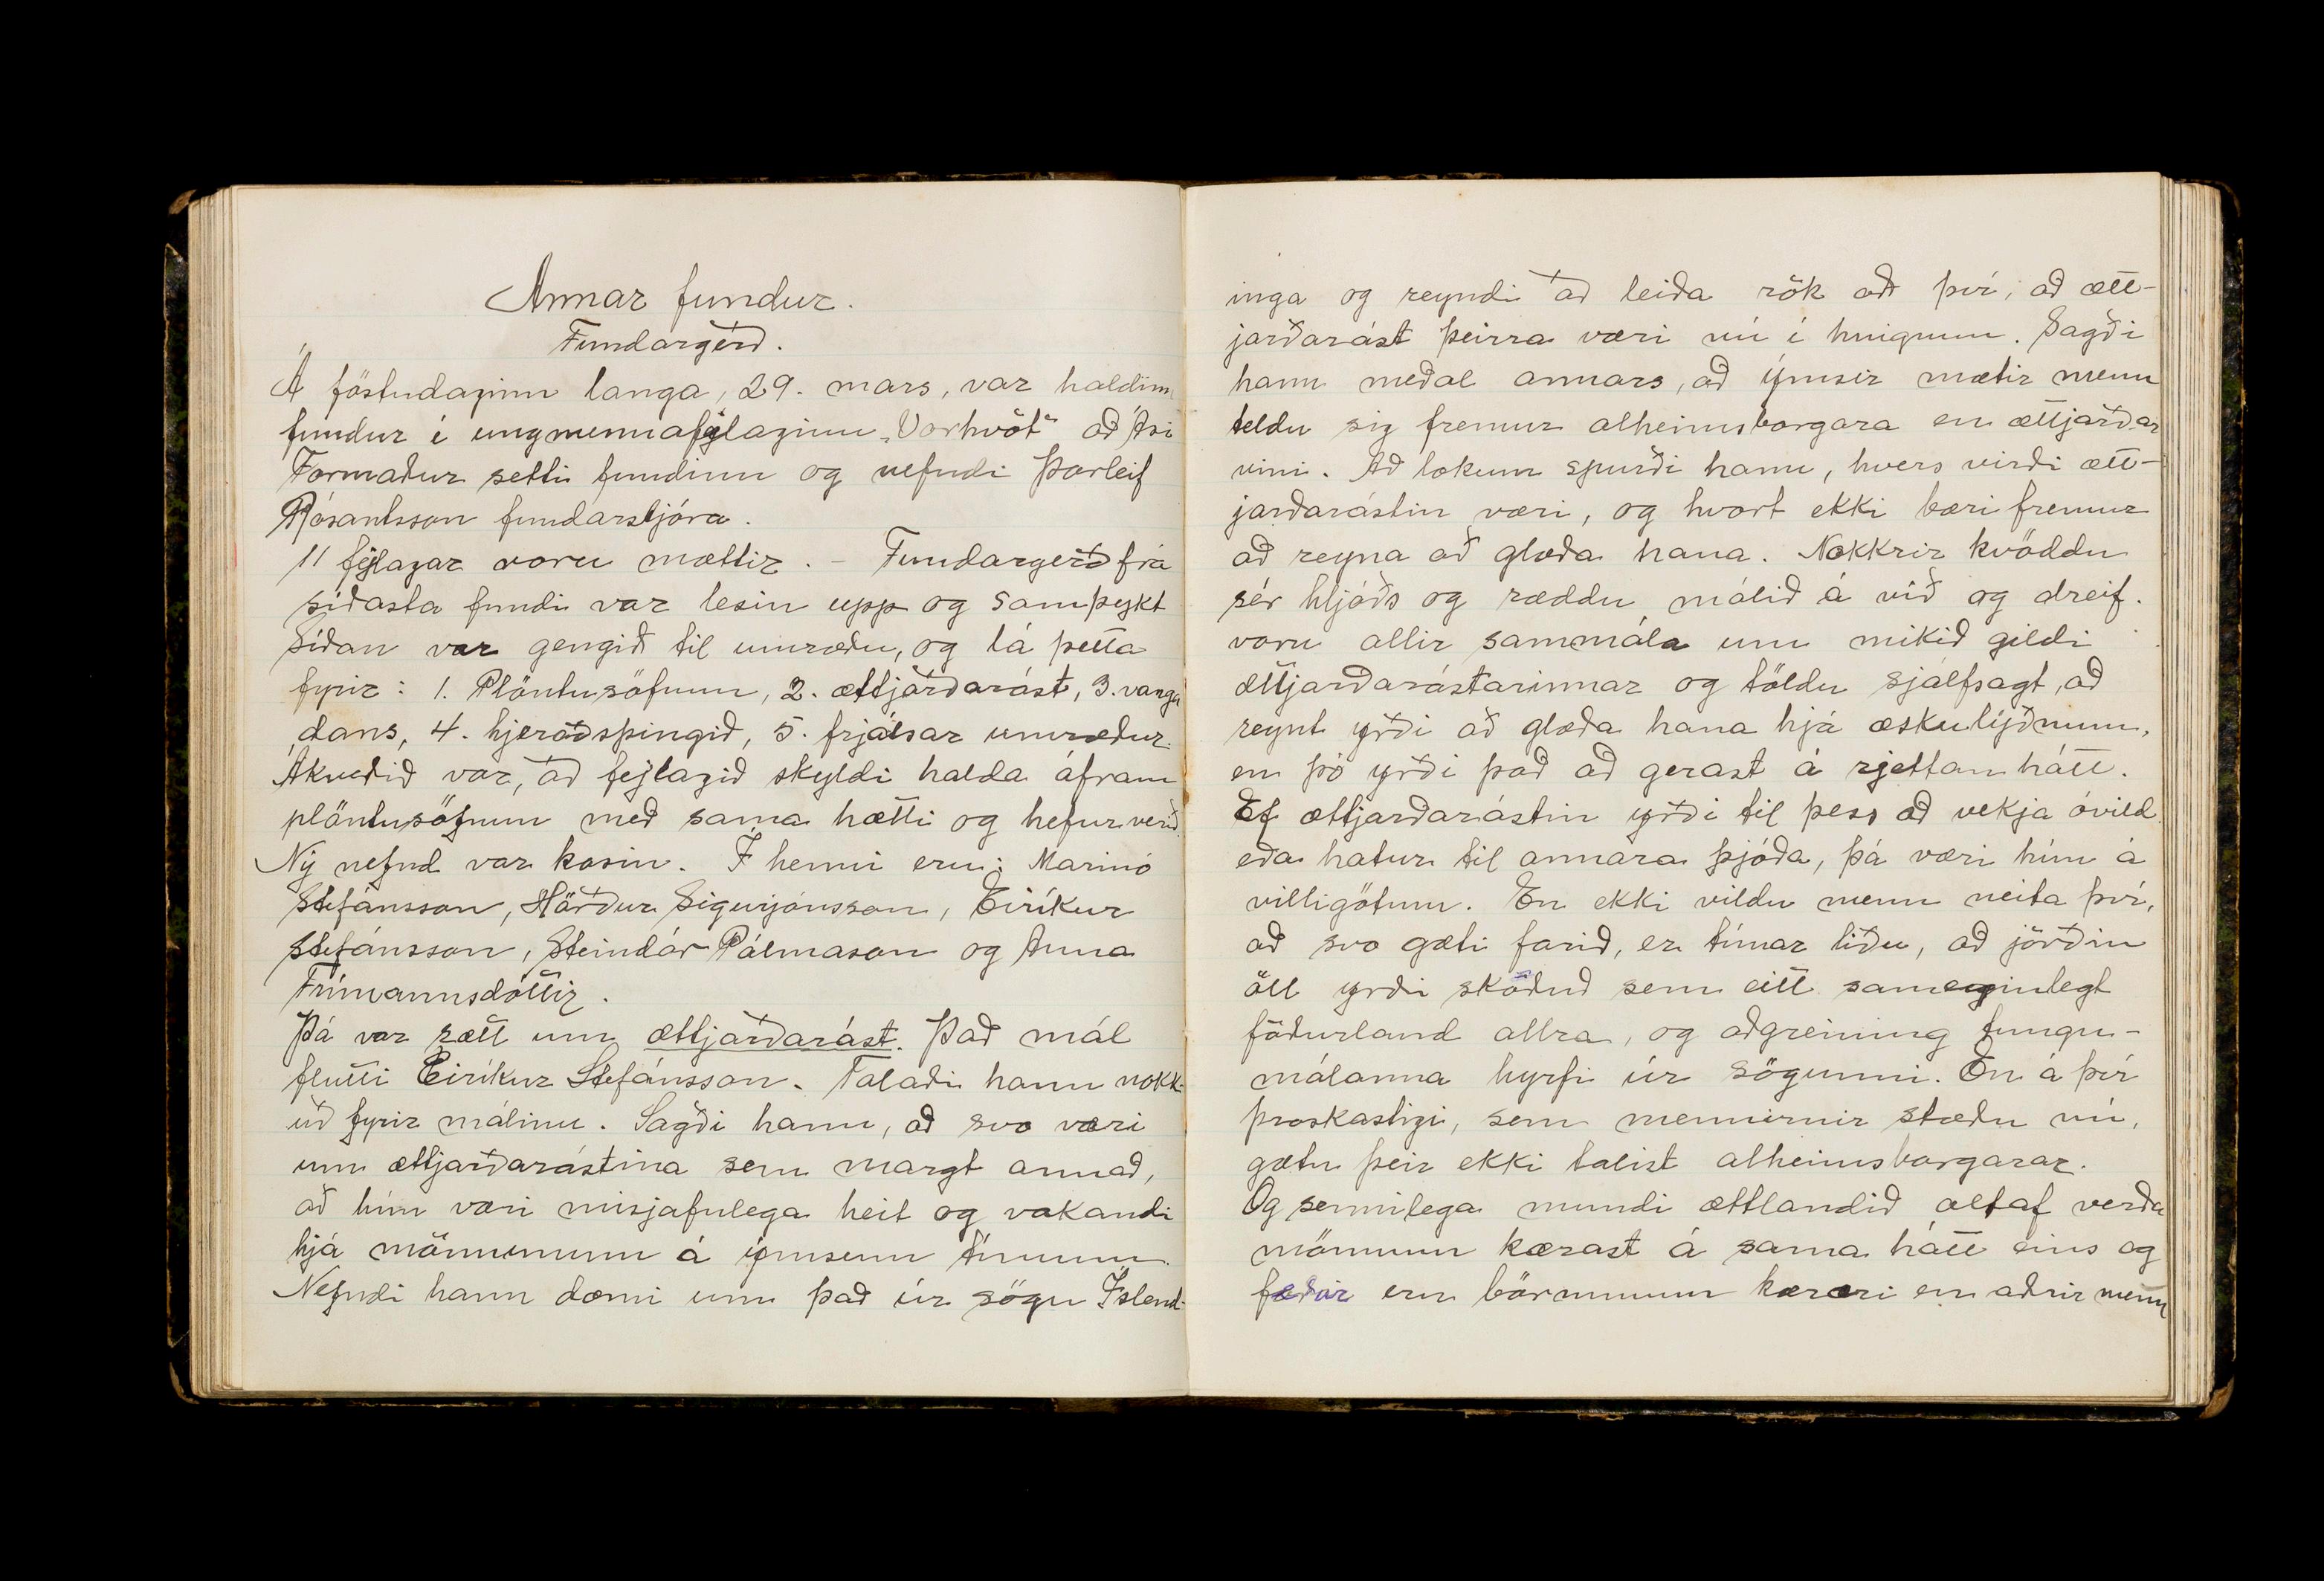 Annar fundur.
Fundargerð.
Á föstudaginn langa, 29. mars, var haldinn
fundur í ungmennafjelaginu „Vorhvöt“ að Ási
Formaður setti fundinn og nefndi Þorleif
Rósantsson fundarstjóra.
11 fjelagar voru mættir. - Fundargerð frá
síðasta fundi var lesin upp og samþykt
Síðan var gengið til umræðu, og lá þetta
fyrir: 1. Plöntusöfnun, 2. ættjarðarást, 3. vanga
dans, 4. hjeraðsþingið, 5. frjálsar umræður.
Ákveðið var, að fjelagið skyldi halda áfram
plöntusöfnun með sama hætti og hefur verið.
Ný nefnd var kosin. Í henni eru: Marinó
Stefánsson, Hörður Sigurjónsson, Eiríkur
Stefánsson, Steindór Pálmason og Anna
Frímannsdóttir.
Þá var rætt um ættjarðarást. Það mál
flutti Eiríkur Stefánsson. Talaði hann nokk-
uð fyrir málinu. Sagði hann, að svo væri
um ættjarðarástina sem margt annað,
að hún væri misjafnlega heit og vakandi
hjá mönnunum á ýmsum tímum.
Nefndi hann dæmi um það úr sögu Íslend-
inga og reyndi að leiða rök að því, að ætt-
jarðarást þeirra væri nú í hnignun. Sagði
hann meðal annars, að ýmsir mætir menn
teldu sig fremur alheimsborgara en ættjarðar
vini. Að lokum spurði hann, hvers virði ætt-
jarðarástin væri, og hvort ekki bæri fremur
að reyna að glæða hana. Nokkrir kvöddu
sér hljóðs og ræddu málið á víð og dreif.
voru allir sammála um mikið gildi
ættjarðarástarinnar og töldu sjálfsagt, að
reynt yrði að glæða hana hjá æskulýðnum,
en þó yrði það að gerast á rjettan hátt.
Ef ættjarðarástin yrði til þess að vekja óvild
eða hatur til annara þjóða, þá væri hún á
villigötum. En ekki vildu menn neita því,
að svo gæti farið, er tímar liðu, að jörðin
öll yrði skoðuð sem eitt sameginlegt
föðurland allra, og aðgreining tungu-
málanna hyrfi úr sögunni. En á því
þroskastigi, sem mennirnir stæðu nú,
gætu þeir ekki talist alheimsborgarar.
Og sennilega mundi ættlandið altaf verða
mönnum kærast á sama hátt eins og
feður eru börnunum kærari en aðrir menn